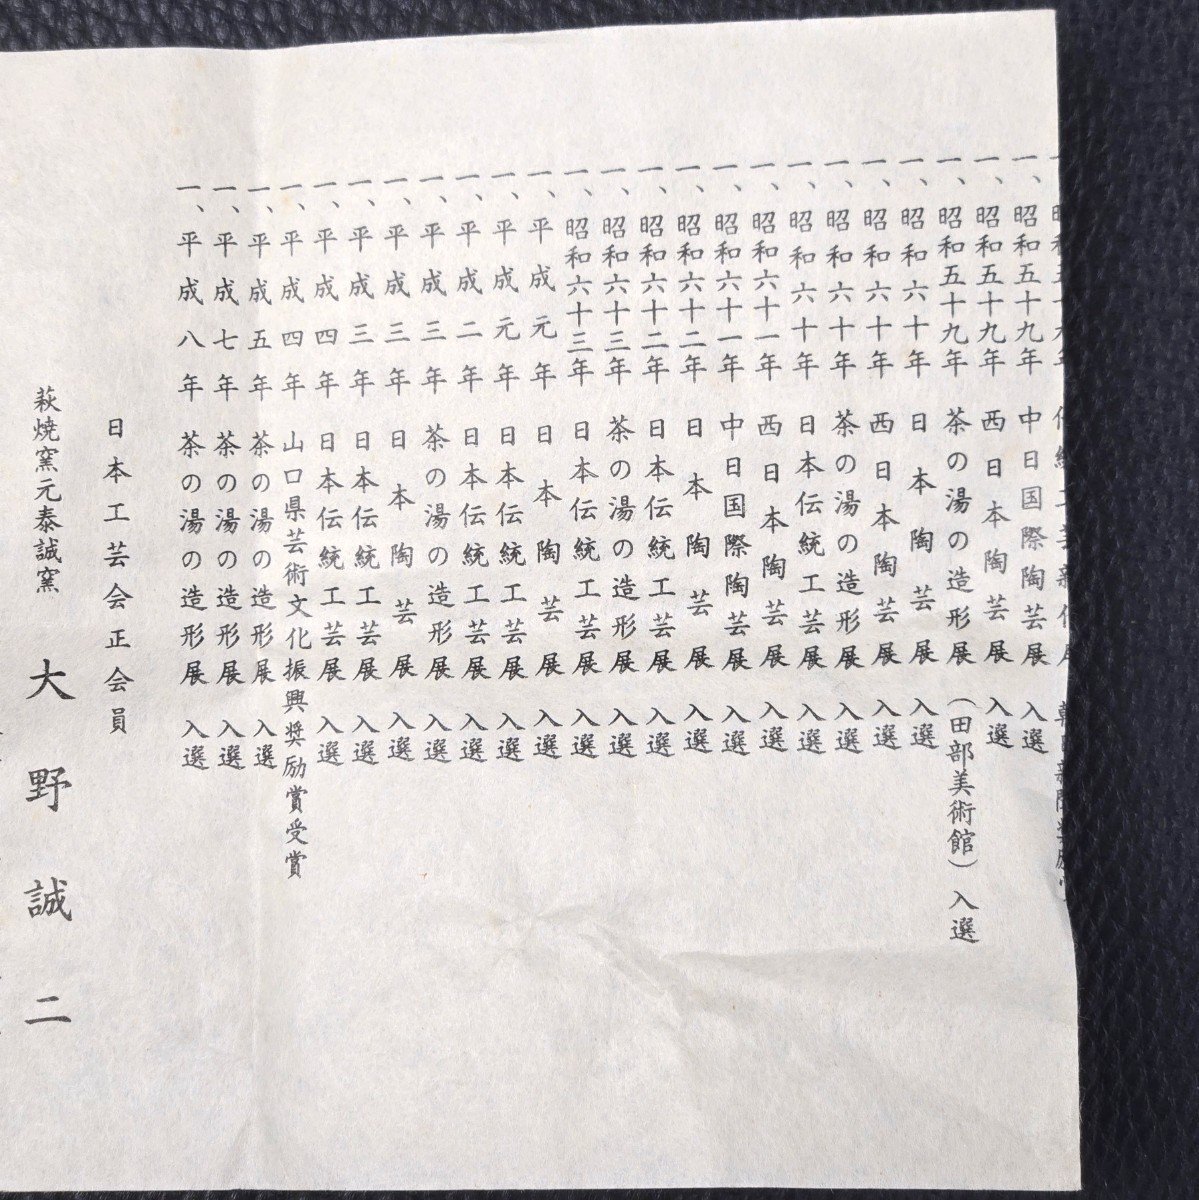 一、昭和五十九年 中日国際陶芸展 入選
一、昭和五十九年 西日本陶芸展 入選
一、昭和五十九年 茶の湯の造形展（田部美術館）入選
一、昭和六十年 日本陶芸展 入選
一、昭和六十年 西日本陶芸展 入選
一、昭和六十年 茶の湯の造形展 入選
一、昭和六十年 日本伝統工芸展 入選
一、昭和六十一年 西日本陶芸展 入選
一、昭和六十一年 中日国際陶芸展 入選
一、昭和六十二年 日本陶芸展 入選
一、昭和六十二年 日本伝統工芸展 入選
一、昭和六十三年 茶の湯の造形展 入選
一、昭和六十三年 日本伝統工芸展 入選
一、平成元年 日本陶芸展 入選
一、平成元年 日本伝統工芸展 入選
一、平成二年 日本伝統工芸展 入選
一、平成三年 茶の湯の造形展 入選
一、平成三年 日本陶芸展 入選
一、平成三年 日本伝統工芸展 入選
一、平成四年 日本伝統工芸展 入選
一、平成四年 山口県芸術文化振興奨励賞受賞
一、平成五年 茶の湯の造形展 入選
一、平成七年 茶の湯の造形展 入選
一、平成八年 茶の湯の造形展 入選
日本工芸会正会員
萩焼窯元泰誠窯 大野誠二